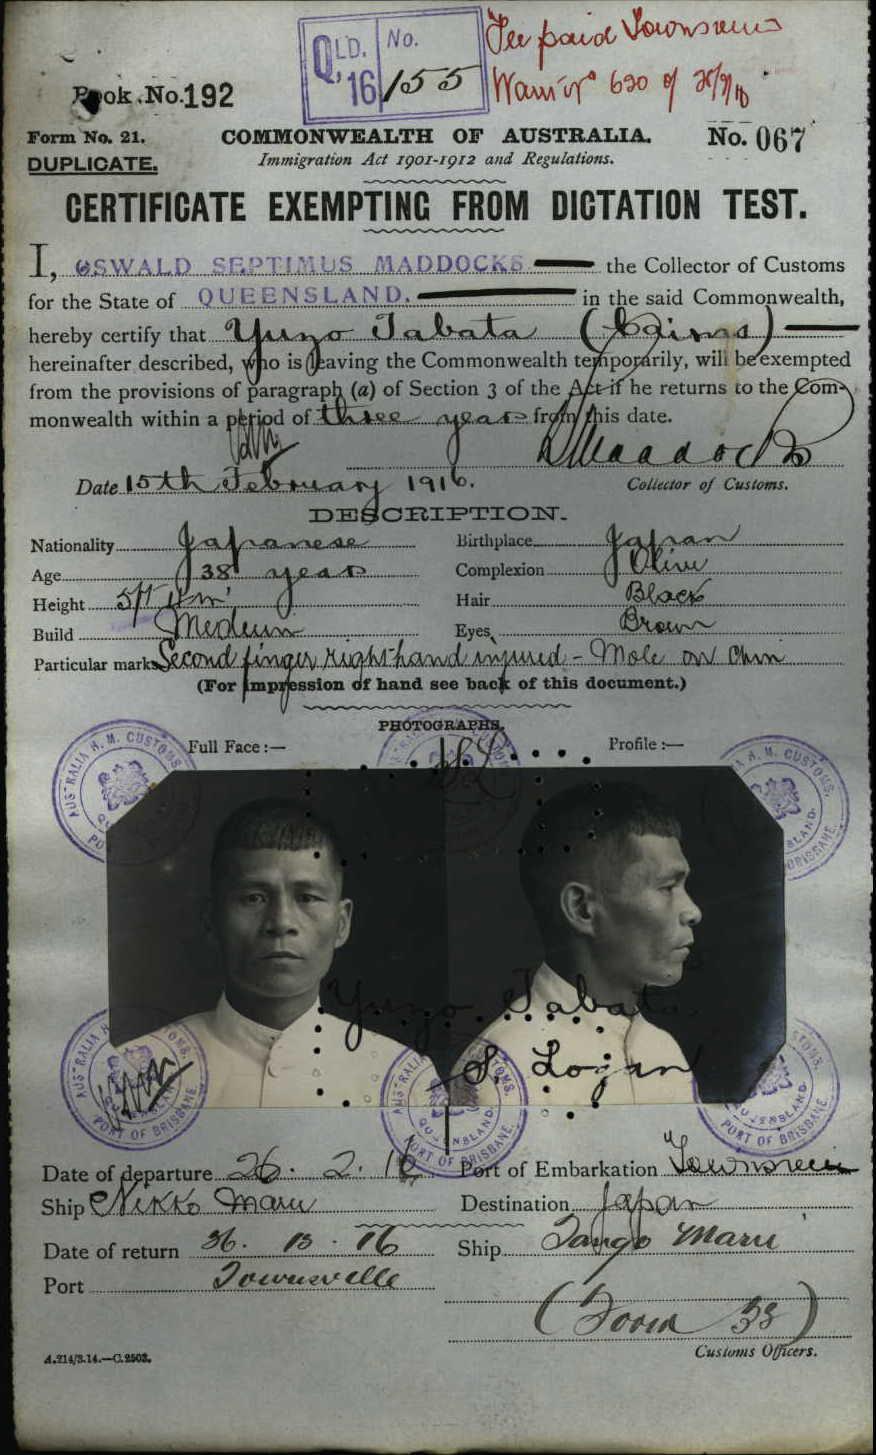 QLD. No.
'16 155
Fee paid Townsville
Warr nº 620 of
Book No. 192
Form No. 21. COMMONWEALTH OF AUSTRALIA. No. 067
DUPLICATE. Immigration Act 1901-1912 and Regulations.
CERTIFICATE EXEMPTING FROM DICTATION TEST.
I, OSWALD SEPTIMUS MADDOCKS the Collector of Customs
for the State of QUEENSLAND. in the said Commonwealth,
hereby certify that Yuzo Tabata (Cairns)
hereinafter described, who is leaving the Commonwealth temporarily, will be exempted
from the provisions of paragraph (a) of Section 3 of the Act if he returns to the Com-
monwealth within a period of three years from this date.
Maddocks
Date 15th February 1916. Collector of Customs.
DESCRIPTION.
Nationality Japanese Birthplace Japan
Age 38 years Complexion Olive
Height 5ft Hair Black
Build Medium Eyes Brown
Particular marks Second finger right hand injured - Mole on Chin
(For impression of hand see back of this document.)
PHOTOGRAPHS.
Full Face :— Profile :—
AUSTRALIA H. M. CUSTOMS. QUEENSLAND. PORT OF BRISBANE
Yuzo Tabata
S. Logan
Date of departure 26. 2. 16 Port of Embarkation Townsville
Ship Nikko Maru Destination Japan
Date of return 16 Ship Tango Maru
Port Townsville
(Form 33)
Customs Officers.
A.214/3.14.—C.2503.